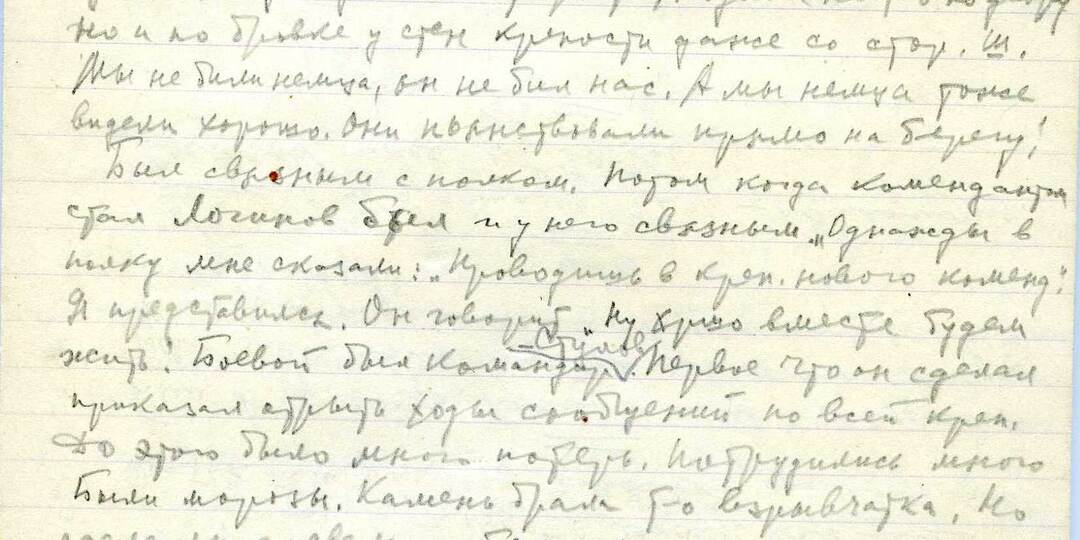 но и по бровке у стен крепости даже со стор. Ш.
Мы не били немца, он не бил нас. А мы немца тоже
видели хорошо. Они пьянствовали прямо на берегу!
Был связным с полком. Потом когда комендантом
стал Логинов был и у него связным. „Однажды в
полку мне сказали: „Проводишь в креп. нового коменд."
Я представился. Он говорит „Ну хршо вместе будем
– Стулов
жить! Боевой был командир. Первое что он сделал
приказал отрыть ходы сообщений по всей креп.
До этого было много потерь. Потрудились много
Были морозы. Камень брала т-о взрывчатка. Но